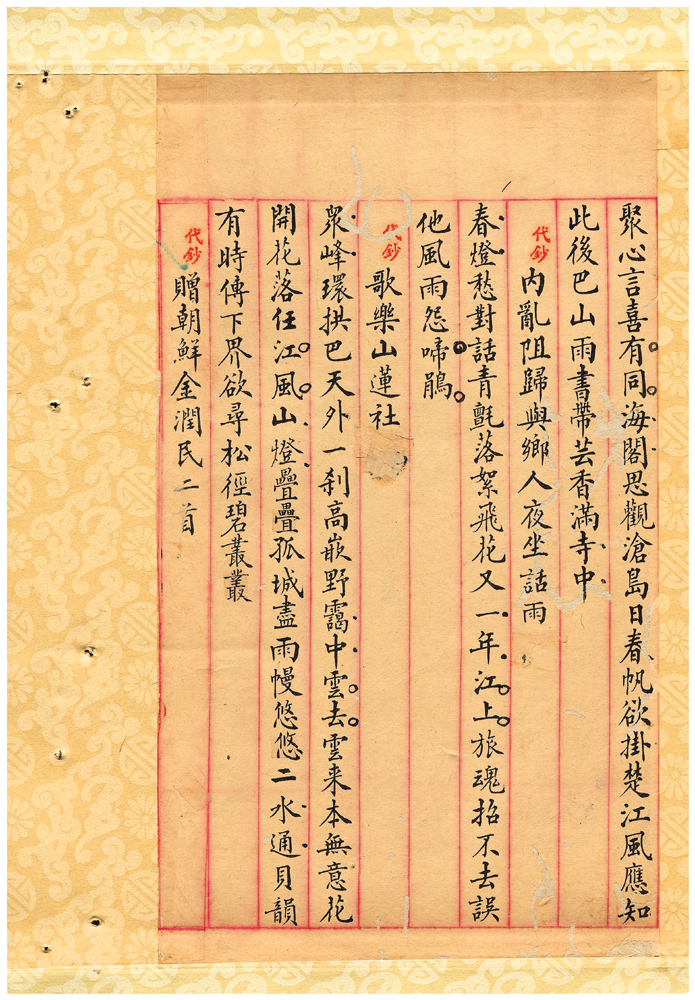 聚心言喜有同海閣思觀滄島日春帆欲掛楚江風應知
此後巴山雨書帶芸香滿寺中
代鈔
內亂阻歸與鄉人夜坐話雨
春燈愁對話青氈落絮飛花又一年江上旅魂招不去誤
他風雨怨啼鵑
代鈔
歌樂山蓮社
眾峰環拱巴天外一剎高嵌野靄中雲去雲来本無意花
開花落任江風山燈疊疊孤城盡雨幔悠悠二水通貝韻
有時傳下界欲尋松徑碧叢叢
代鈔
贈朝鮮金潤民二首